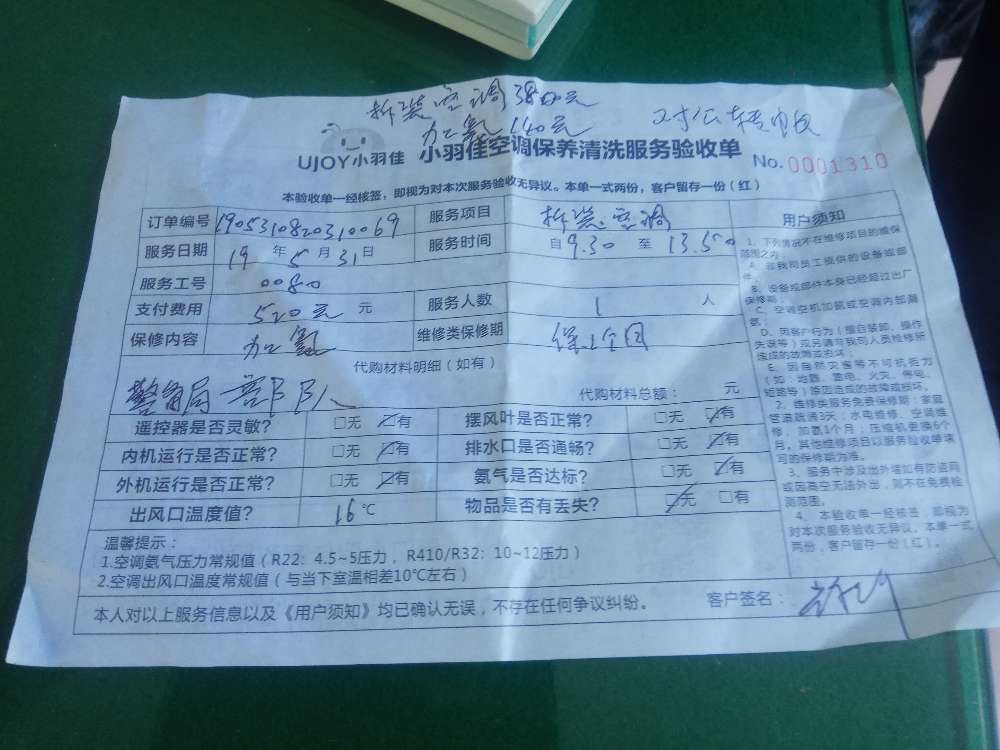 拆装空调380元
加氨140元
对公转收
UJOY小羽佳 小羽佳空调保养清洗服务验收单 No.0001310
本验收单一经核签，即视为对本次服务验收无异议。本单一式两份，客户留存一份（红）
订单编号 1905310820310069 服务项目 拆装空调
服务日期 19年5月31日 服务时间 自9.30至13.50
服务工号 0080
支付费用 520元 元 服务人数 1 人
保修内容 加氨 维修类保修期 保1个月
代购材料明细（如有）
代购材料总额： 元
遥控器是否灵敏？ □无 □有 摆风叶是否正常？ □无 □有
内机运行是否正常？ □无 □有 排水口是否通畅？ □无 □有
外机运行是否正常？ □无 □有 氨气是否达标？ □无 □有
出风口温度值？ 16℃ 物品是否有丢失？ □无 □有
温馨提示：
1.空调氨气压力常规值（R22：4.5~5压力，R410/R32：10~12压力）
2.空调出风口温度常规值（与当下室温相差10℃左右）
本人对以上服务信息以及《用户须知》均已确认无误，不存在任何争议纠纷。 客户签名：
用户须知
1、下列情况不在维修项目的维保
范围之内：
A、非我司员工提供的设备或部
件；
B、设备或部件本身已经超过出厂
保修期；
C、空调空机加氨或空调内部漏
氨；
D、因客户行为（擅自装卸、操作
失误等）或另请可我司人员维修所
造成的故障或损坏；
E、因自然灾害等不可抗力
（如：地震、雷电、火灾、停电、
短路等）原因造成的故障或损坏。
2、维修类服务免费保修期：家庭
管道疏通3天；水电维修、空调维
修、加氨1个月；压缩机更换6个
月，其他维修项目以服务验收单填
写的保修期为准。
3、服务中涉及出外墙如有防盗网
或因高空无法外出，则不在免费检
测范围。
4、本验收单一经核签，即视为
对本次服务验收无异议。本单一式
两份，客户留存一份（红）。